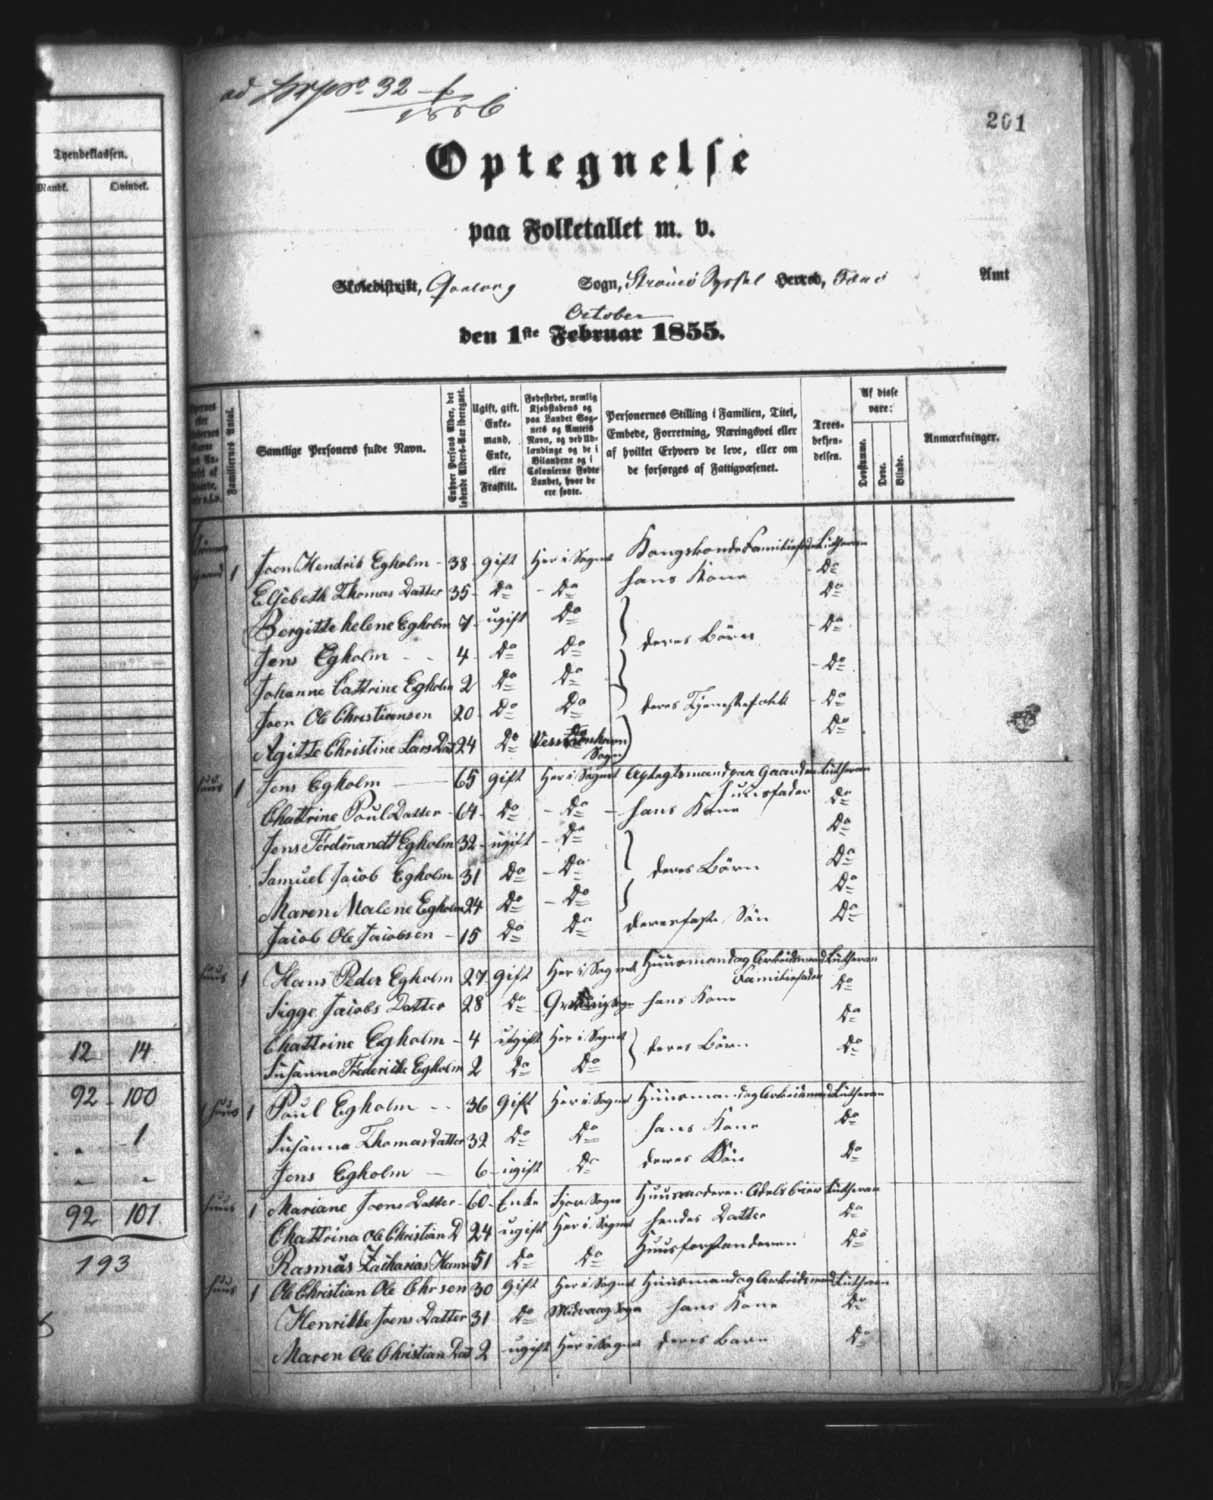 201
Tyendeklassen.
Mandk. Qvindek.
12 14
92 100
1
92 101
193
Optegnelse
paa Folketallet m. v.
Skoledistrikt, Sogn, Strömö Syssel Herred, Amt
October
den 1ste Februar 1855.
Familiernes Antal.
Samtlige Personers fulde Navn.
Enhver Persons Alder, det løbende Alders-Aar iberegnet.
Ugift, gift, Enkemand, Enke, eller Fraskilt.
Fødestedet, nemlig Kjøbstadens og paa Landet Sognets og Amtets Navn, og ved Udlændinge og de i Bilandene og i Colonierne Fødte Landet, hvor de ere fødte.
Personernes Stilling i Familien, Titel, Embede, Forretning, Næringsvei eller af hvilket Erhverv de leve, eller om de forsørges af Fattigvæsenet.
Troesbekjendelsen.
Af disse vare:
Døvstumme. Døve. Blinde.
Anmærkninger.
1 Joen Hendrik Egholm 38 gift Her i Sognet Kongsbonde Familiefader Lutheran
Elsebeth Thomas Datter 35 do do hans Kone do
Bergitte helene Egholm 7 ugift do do
Jens Egholm 4 do do deres Börn do
Johanne Cattrine Egholm 2 do do do
Joen Ole Christiansen 20 do do deres Tjenestefolk do
Agitte Christine Lars Dat 24 do Sogn do
huus 1 Jens Egholm 65 gift Her i Sognet Aftægtsmand paa Gaarden Lutheran
Chattrine Poul Datter 64 do do hans Kone do
Jens Ferdinandt Egholm 32 ugift do do
Samuel Jacob Egholm 31 do do deres Börn do
Maren Malene Egholm 24 do do do
Jacob Ole Jacobsen 15 do do do
huus 1 Hans Peder Egholm 27 gift Her i Sognet Huusmand og Arbeidsmand Lutheran
Familiefader
Sigge Jacobs Datter 28 do hans Kone do
Chattrine Egholm 4 ugift Her i Sognet do
Susanna Frederikke Egholm 2 do do deres Börn do
huus 1 Poul Egholm 36 gift Her i Sognet Huusmand og Arbeidsmand Lutheran
Susanna Thomasdatter 32 do do hans Kone do
Jens Egholm 6 ugift do deres Sön do
huus 1 Mariane Joens Datter 60 Enke Sogn Huusmoderen Lutheran
Chattrina Ole Christian D 24 ugift Her i Sognet hendes Datter do
Rasmus Zacharias 51 do do Huusforstanderen do
huus 1 Ole Christian Ole Chrsen 30 gift Her i Sognet Huusmand og Arbeidsmand Lutheran
Henrikke Joens Datter 31 do Midvaag Sogn hans Kone do
Maren Ole Christian Dat 2 ugift Her i Sognet deres Barn do